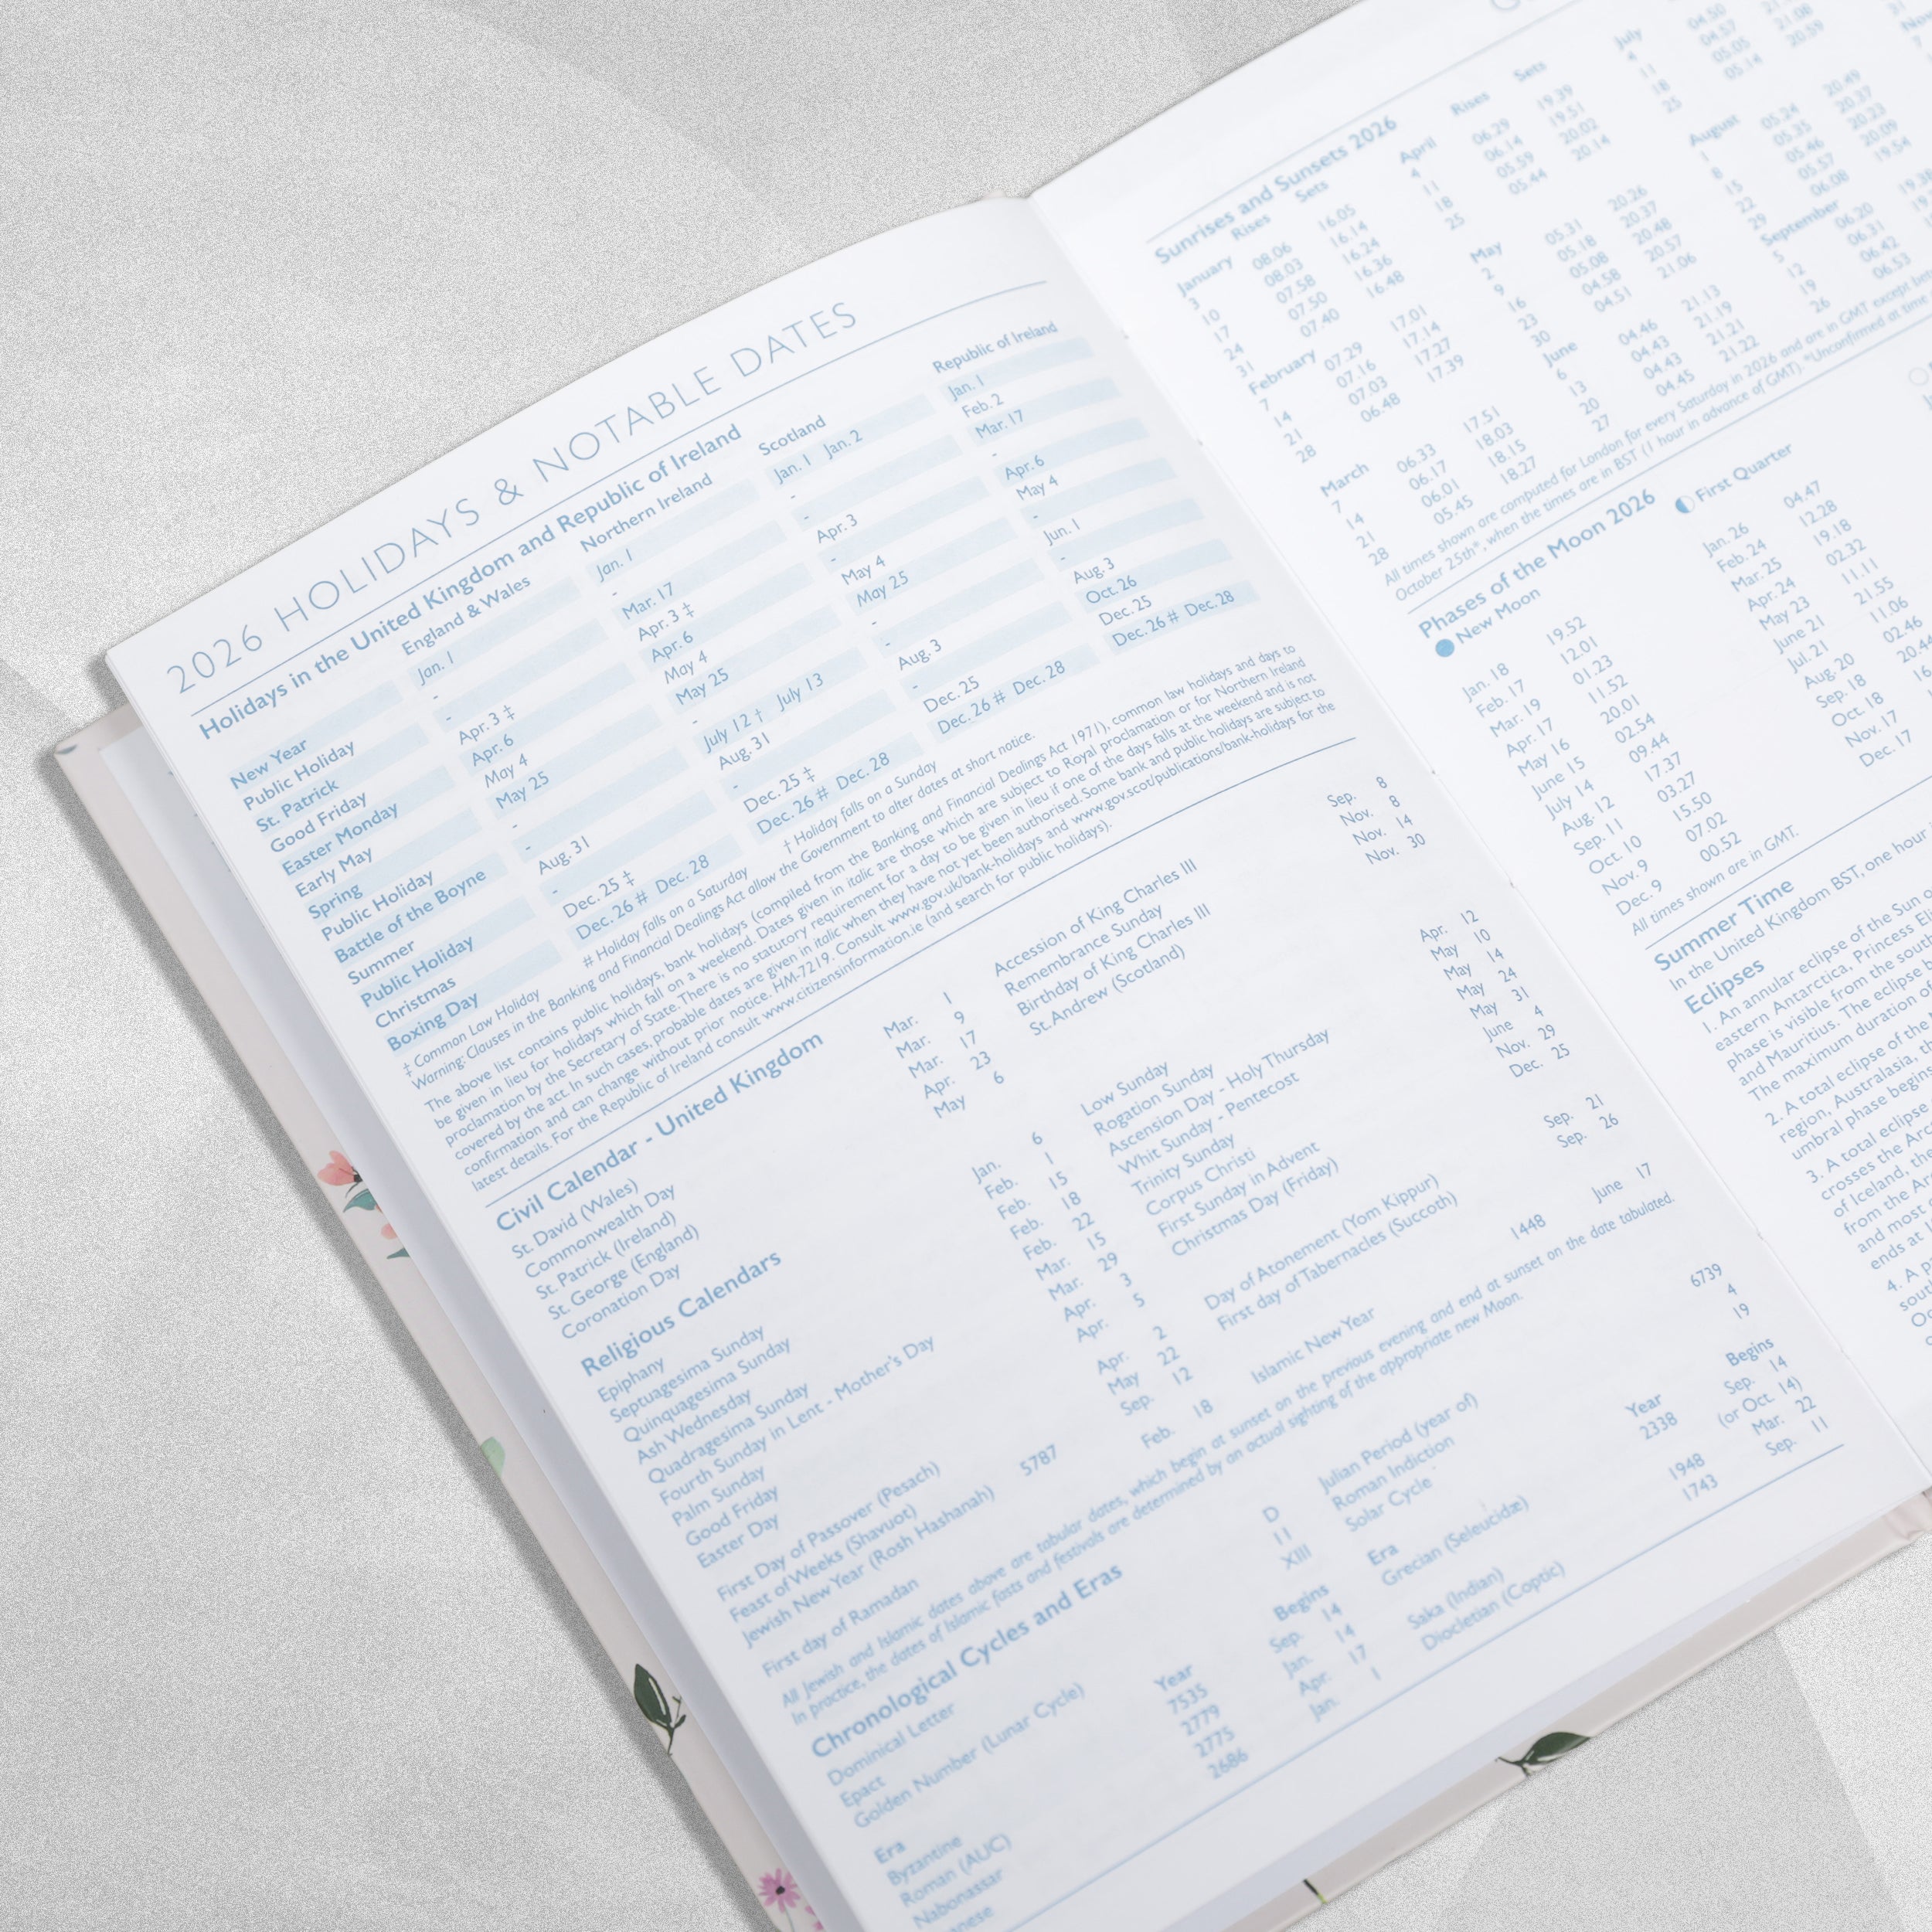 2026 HOLIDAYS & NOTABLE DATES
Holidays in the United Kingdom and Republic of Ireland
England & Wales Northern Ireland Scotland Republic of Ireland
New Year Jan. 1 Jan. 1 Jan. 1 Jan. 2 Jan. 1
Public Holiday - - - Feb. 2
St. Patrick - Mar. 17 - Mar. 17
Good Friday Apr. 3 ‡ Apr. 3 ‡ Apr. 3 -
Easter Monday Apr. 6 Apr. 6 - Apr. 6
Early May May 4 May 4 May 4 May 4
Spring May 25 May 25 May 25 -
Public Holiday - - - Jun. 1
Battle of the Boyne - July 12 † July 13 - -
Summer Aug. 31 Aug. 31 Aug. 3 Aug. 3
Public Holiday - - - Oct. 26
Christmas Dec. 25 ‡ Dec. 25 ‡ Dec. 25 Dec. 25
Boxing Day Dec. 26 # Dec. 28 Dec. 26 # Dec. 28 Dec. 26 # Dec. 28 Dec. 26 # Dec. 28
‡ Common Law Holiday # Holiday falls on a Saturday † Holiday falls on a Sunday
Warning: Clauses in the Banking and Financial Dealings Act allow the Government to alter dates at short notice.
The above list contains public holidays, bank holidays (compiled from the Banking and Financial Dealings Act 1971), common law holidays and days to
be given in lieu for holidays which fall on a weekend. Dates given in italic are those which are subject to Royal proclamation or for Northern Ireland
proclamation by the Secretary of State. There is no statutory requirement for a day to be given in lieu if one of the days falls at the weekend and is not
covered by the act. In such cases, probable dates are given in italic when they have not yet been authorised. Some bank and public holidays are subject to
confirmation and can change without prior notice. HM-7219. Consult www.gov.uk/bank-holidays and www.gov.scot/publications/bank-holidays for the
latest details. For the Republic of Ireland consult www.citizensinformation.ie (and search for public holidays).
Civil Calendar - United Kingdom
St. David (Wales) Mar. 1 Accession of King Charles III Sep. 8
Commonwealth Day Mar. 9 Remembrance Sunday Nov. 8
St. Patrick (Ireland) Mar. 17 Birthday of King Charles III Nov. 14
St. George (England) Apr. 23 St. Andrew (Scotland) Nov. 30
Coronation Day May 6
Religious Calendars
Epiphany Jan. 6 Low Sunday Apr. 12
Septuagesima Sunday Feb. 1 Rogation Sunday May 10
Quinquagesima Sunday Feb. 15 Ascension Day - Holy Thursday May 14
Ash Wednesday Feb. 18 Whit Sunday - Pentecost May 24
Quadragesima Sunday Feb. 22 Trinity Sunday May 31
Fourth Sunday in Lent - Mother's Day Mar. 15 Corpus Christi June 4
Palm Sunday Mar. 29 First Sunday in Advent Nov. 29
Good Friday Apr. 3 Christmas Day (Friday) Dec. 25
Easter Day Apr. 5
First Day of Passover (Pesach) Apr. 2 Day of Atonement (Yom Kippur) Sep. 21
Feast of Weeks (Shavuot) May 22 First day of Tabernacles (Succoth) Sep. 26
Jewish New Year (Rosh Hashanah) 5787 Sep. 12
First day of Ramadan Feb. 18 Islamic New Year 1448 June 17
All Jewish and Islamic dates above are tabular dates, which begin at sunset on the previous evening and end at sunset on the date tabulated.
In practice, the dates of Islamic fasts and festivals are determined by an actual sighting of the appropriate new Moon.
Chronological Cycles and Eras
Dominical Letter D Julian Period (year of) 6739
Epact 11 Roman Indiction 4
Golden Number (Lunar Cycle) XIII Solar Cycle 19
Era Year Begins Era Year Begins
Byzantine 7535 Sep. 14 Grecian (Seleucidæ) 2338 Sep. 14
Roman (AUC) 2779 Jan. 14 (or Oct. 14)
Nabonassar 2775 Apr. 17 Saka (Indian) 1948 Mar. 22
2686 Jan. 1 Diocletian (Coptic) 1743 Sep. 11
Sunrises and Sunsets 2026
Rises Sets
January
3 08.06 16.05
10 08.03 16.14
17 07.58 16.24
24 07.50 16.36
31 07.40 16.48
February
7 07.29 17.01
14 07.16 17.14
21 07.03 17.27
28 06.48 17.39
March
7 06.33 17.51
14 06.17 18.03
21 06.01 18.15
28 05.45 18.27
Rises Sets
April
4 06.29 19.39
11 06.14 19.51
18 05.59 20.02
25 05.44 20.14
May
2 05.31 20.26
9 05.18 20.37
16 05.08 20.48
23 04.58 20.57
30 04.51 21.06
June
6 04.46 21.13
13 04.43 21.19
20 04.43 21.21
27 04.45 21.22
July
4 04.50
11 04.57
18 05.05 21.08
25 05.14 20.59
August
1 05.24 20.49
8 05.35 20.37
15 05.46 20.23
22 05.57 20.09
29 06.08 19.54
September
5 06.20
12 06.31
19 06.42
26 06.53
All times shown are computed for London for every Saturday in 2026 and are in GMT except
October 25th*, when the times are in BST (1 hour in advance of GMT). *Unconfirmed at time
Phases of the Moon 2026
New Moon First Quarter
Jan. 18 19.52 Jan. 26 04.47
Feb. 17 12.01 Feb. 24 12.28
Mar. 19 01.23 Mar. 25 19.18
Apr. 17 11.52 Apr. 24 02.32
May 16 20.01 May 23 11.11
June 15 02.54 June 21 21.55
July 14 09.44 Jul. 21 11.06
Aug. 12 17.37 Aug. 20 02.46
Sep. 11 03.27 Sep. 18 20.44
Oct. 10 15.50 Oct. 18
Nov. 9 07.02 Nov. 17
Dec. 9 00.52 Dec. 17
All times shown are in GMT.
Summer Time
In the United Kingdom BST, one hour
Eclipses
1. An annular eclipse of the Sun
eastern Antarctica, Princess
phase is visible from the
and Mauritius. The eclipse
The maximum duration of
2. A total eclipse of the
region, Australasia,
umbral phase begins
3. A total eclipse
crosses the
of Iceland, the
from the
and most
ends at
4. A